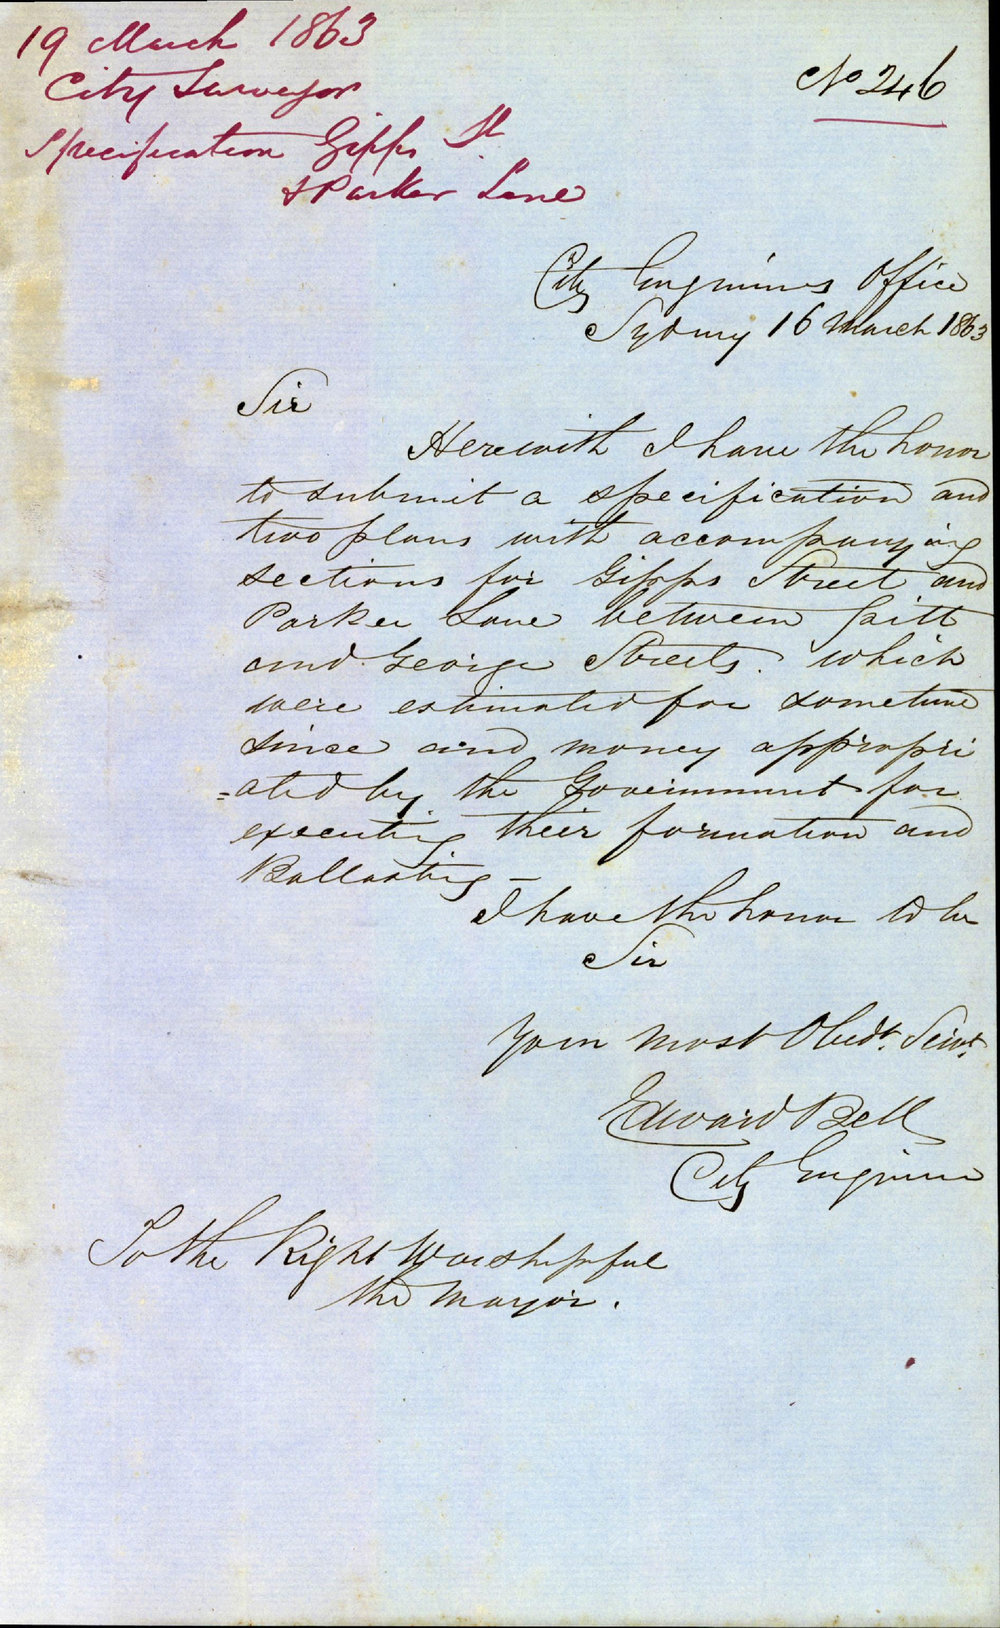 19 March 1863
City Surveyor
Specification Gipps St
& Parker Lane
No 246
City Engineers Office
Sydney 16 March 1863
Sir
Herewith I have the honor
to submit a specification and
two plans with accompanying
sections for Gipps Street and
Parker Lane between Pitt
and George Streets. which
were estimated for sometime
since and money appropri
=ated by the Government for
executing their formation and
Ballasting –
I have the honor to be
Sir
Your most Obedt. Servt.
Edward Bell
City Engineer
To the Right Worshipful
the Mayor.